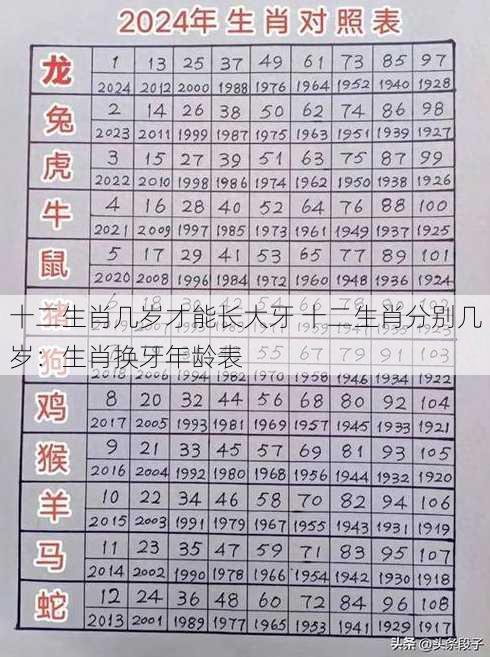 2024年生肖对照表
龙 1 13 25 37 49 61 73 85 97
2024 2012 2000 1988 1976 1964 1952 1940 1928
兔 2 14 26 38 50 62 74 86 98
2023 2011 1999 1987 1975 1963 1951 1939 1927
虎 3 15 27 39 51 63 75 87 99
2022 2010 1998 1986 1974 1962 1950 1938 1926
牛 4 16 28 40 52 64 76 88 100
2021 2009 1997 1985 1973 1961 1949 1937 1925
鼠 5 17 29 41 53 65 77 89 101
2020 2008 1996 1984 1972 1960 1948 1936 1924
十二生肖几岁才能长大牙 十二生肖分别几
岁：生肖换牙年龄表
猪
狗
鸡 8 20 32 44 56 68 80 92 104
2017 2005 1993 1981 1969 1957 1945 1933 1921
猴 9 21 33 45 57 69 81 93 105
2016 2004 1992 1980 1968 1956 1944 1932 1920
羊 10 22 34 46 58 70 82 94 106
2015 2003 1991 1979 1967 1955 1943 1931 1919
马 11 23 35 47 59 71 83 95 107
2014 2002 1990 1978 1966 1954 1942 1930 1918
蛇 12 24 36 48 60 72 84 96 108
2013 2001 1989 1977 1965 1953 1941 1929 1917
头条 @头条段子